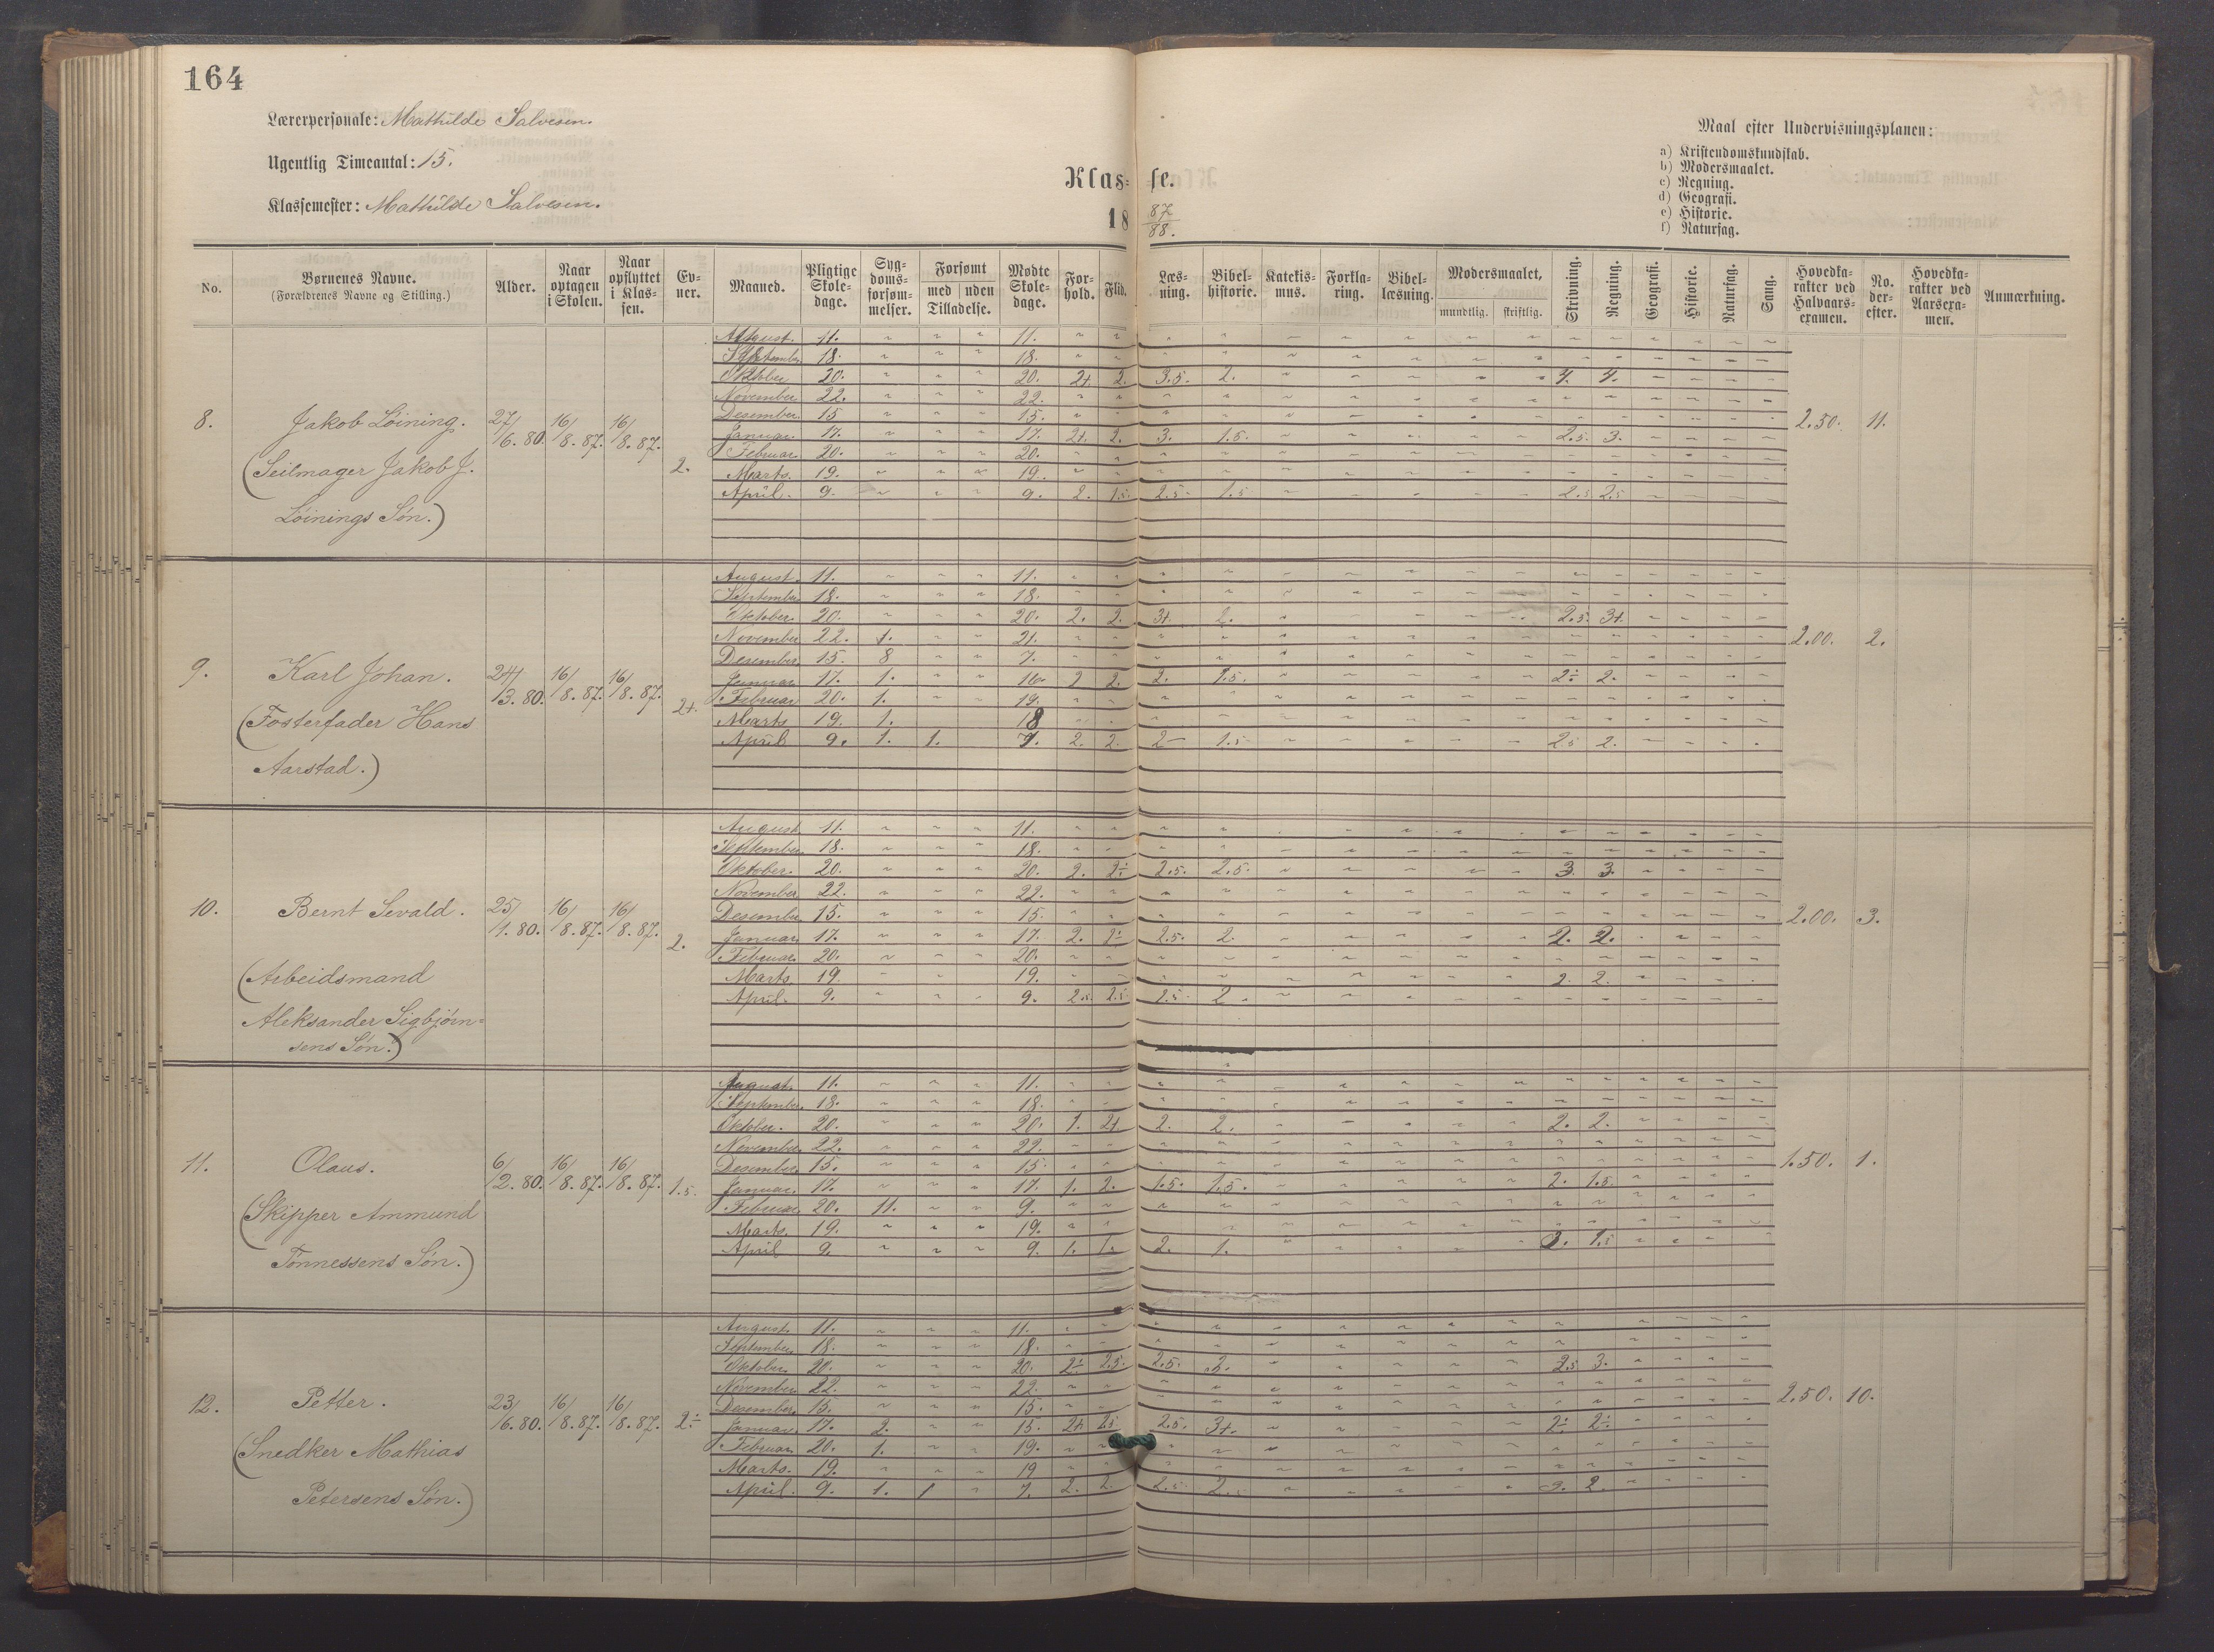 164
Lærerpersonale: Mathilde Salvesen.
Ugentlig Timeantal: 15.
Klassemester: Mathilde Salvesen.
Klas- se.
18 87/88.
Maal efter Undervisningsplanen:
a) Kristendomskundskab.
b) Modersmaalet.
c) Regning.
d) Geografi.
e) Historie.
f) Naturfag.
No. Børnenes Navne. (Forældrenes Navne og Stilling.) Alder. Naar optagen i Skolen. Naar opflyttet i Klassen. Evner. Maaned. Pligtige Skoledage. Sygdomsforsømmelser. Forsømt med uden Tilladelse. Mødte Skoledage. Forhold. Flid. Læsning. Bibelhistorie. Katekismus. Forklaring. Bibellæsning. Modersmaalet, mundtlig. skriftlig. Skrivning. Regning. Geografi. Historie. Naturfag. Sang. Hovedkarakter ved Halvaarsexamen. No. derefter. Hovedkarakter ved Aarsexamen. Anmærkning.
8. Jakob Löining. (Seilmager Jakob J. Löinings Søn.) 27/6.80. 16/8.87. 16/8.87. 2. 2.50. 11.
August. 11. " " " 11.
September 18. " " " 18.
Oktober 20. " " " 20. 2+. 2. 3.5. 2. 4. 4.
November 22. " " " 22.
Desember 15 " " " 15.
Januar. 17. " " " 17. 2+. 2. 3. 1.5. 2.5. 3.
Februar 20. " " " 20.
Marts. 19. " " " 19.
April. 9. " " " 9. 2. 1.5. 2.5. 1.5 2.5 2.5
9. Karl Johan. (Fosterfader Hans Aarstad.) 24/3.80. 16/8.87. 16/8.87. 2+. 2.00. 2.
August. 11. " " " 11.
September 18. " " " 18.
Oktober. 20. " " " 20. 2. 2. 3+. 2. 2.5. 3+.
November 22. 1. " " 21.
Desember 15. 8 " " 7.
Januar 17. 1. " " 16. 2 2. 2. 1.5. 2÷ 2.
Februar 20. 1. " " 19.
Marts 19. 1. 18
April 9. 1. 1. 7. 2. 2. 2 1.5 2.5 2.
10. Bernt Sevald. (Arbeidsmand Aleksander Sigbjörnsens Søn.) 25/1.80. 16/8.87. 16/8.87. 2. 2.00. 3.
August 11. " " " 11.
September 18. " " " 18.
Oktober. 20. " " " 20. 2. 2÷ 2.5. 2.5. 3. 3.
November 22. " " " 22.
Desember 15. " " " 15.
Januar 17. " " " 17. 2. 2÷ 2.5. 2. 2. 2.
Februar. 20. " " " 20.
Marts 19. " " 19. 2. 2.
April. 9. " " " 9. 2.5. 2.5 2.5. 2.
11. Olaus. (Skipper Ammund Tönnessens Søn.) 6/2.80. 16/8.87. 16/8.87. 1.5. 1.50. 1.
August. 11. " " " 11.
September. 18. " " " 18.
Oktober. 20. " " " 20. 1. 2+ 2. 2. 2. 2.
November 22. " " " 22.
Desember 15. " " " 15.
Januar. 17. " " " 17. 1. 2. 1.5. 1.5. 2. 1.5.
Februar 20. 11. " " 9.
Marts. 19. " " " 19.
April 9. " " " 9. 1. 1. 2. 1. 3. 1.5
12. Petter. (Snedker Mathias Petersens Søn.) 23/6.80. 16/8.87. 16/8.87. 2.÷ 2.50. 10.
August. 11. " " " 11.
September 18. " " " 18.
Oktober 20. " " " 20. 2÷ 2.5. 2.5. 3. 2.5 3.
November 22. " " " 22.
Desember 15. " " " 15.
Januar 17. 2. " " 15. 2+ 2.5 2.5. 3+. 2÷ 2÷
Februar 20. 1. " " 19.
Marts. 19. " " " 19
April. 9. 1. 1 " 7. 2. 2. 2.5. 2. 2.